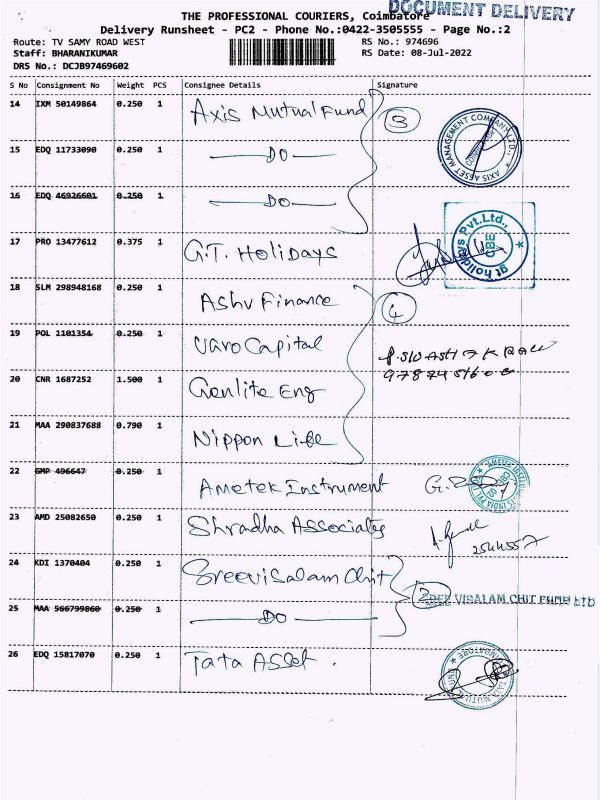 DOCUMENT DELIVERY
THE PROFESSIONAL COURIERS, Coimbatore
Delivery Runsheet - PC2 - Phone No.:0422-3505555 - Page No.:2
Route: TV SAMY ROAD WEST RS No.: 974696
Staff: BHARANIKUMAR RS Date: 08-Jul-2022
DRS No.: DCJB97469602
S No Consignment No Weight PCS Consignee Details Signature
14 IXM 50149864 0.250 1 Axis Mutual Fund 3
AXIS ASSET MANAGEMENT COMPANY LTD.
15 EDQ 11733090 0.250 1 DO
16 EDQ 46926601 0.250 1 DO
17 PRO 13477612 0.375 1 G.T. Holidays
gt holidays Pvt.Ltd., CBE
18 SLM 298948168 0.250 1 Ashv Finance 4
19 POL 1101354 0.250 1 Varo Capital
20 CNR 1687252 1.500 1 Genlite Eng
21 MAA 290837688 0.790 1 Nippon Life
22 GMP 496647 0.250 1 Ametek Instrument
23 AMD 25082650 0.250 1 Shradha Associates
2544557
24 KDI 1370404 0.250 1 Sreevisalam Chit 2
SREE VISALAM CHIT FUND LTD
25 MAA 566799860 0.250 1 DO
26 EDQ 15817070 0.250 1 Tata Asset.